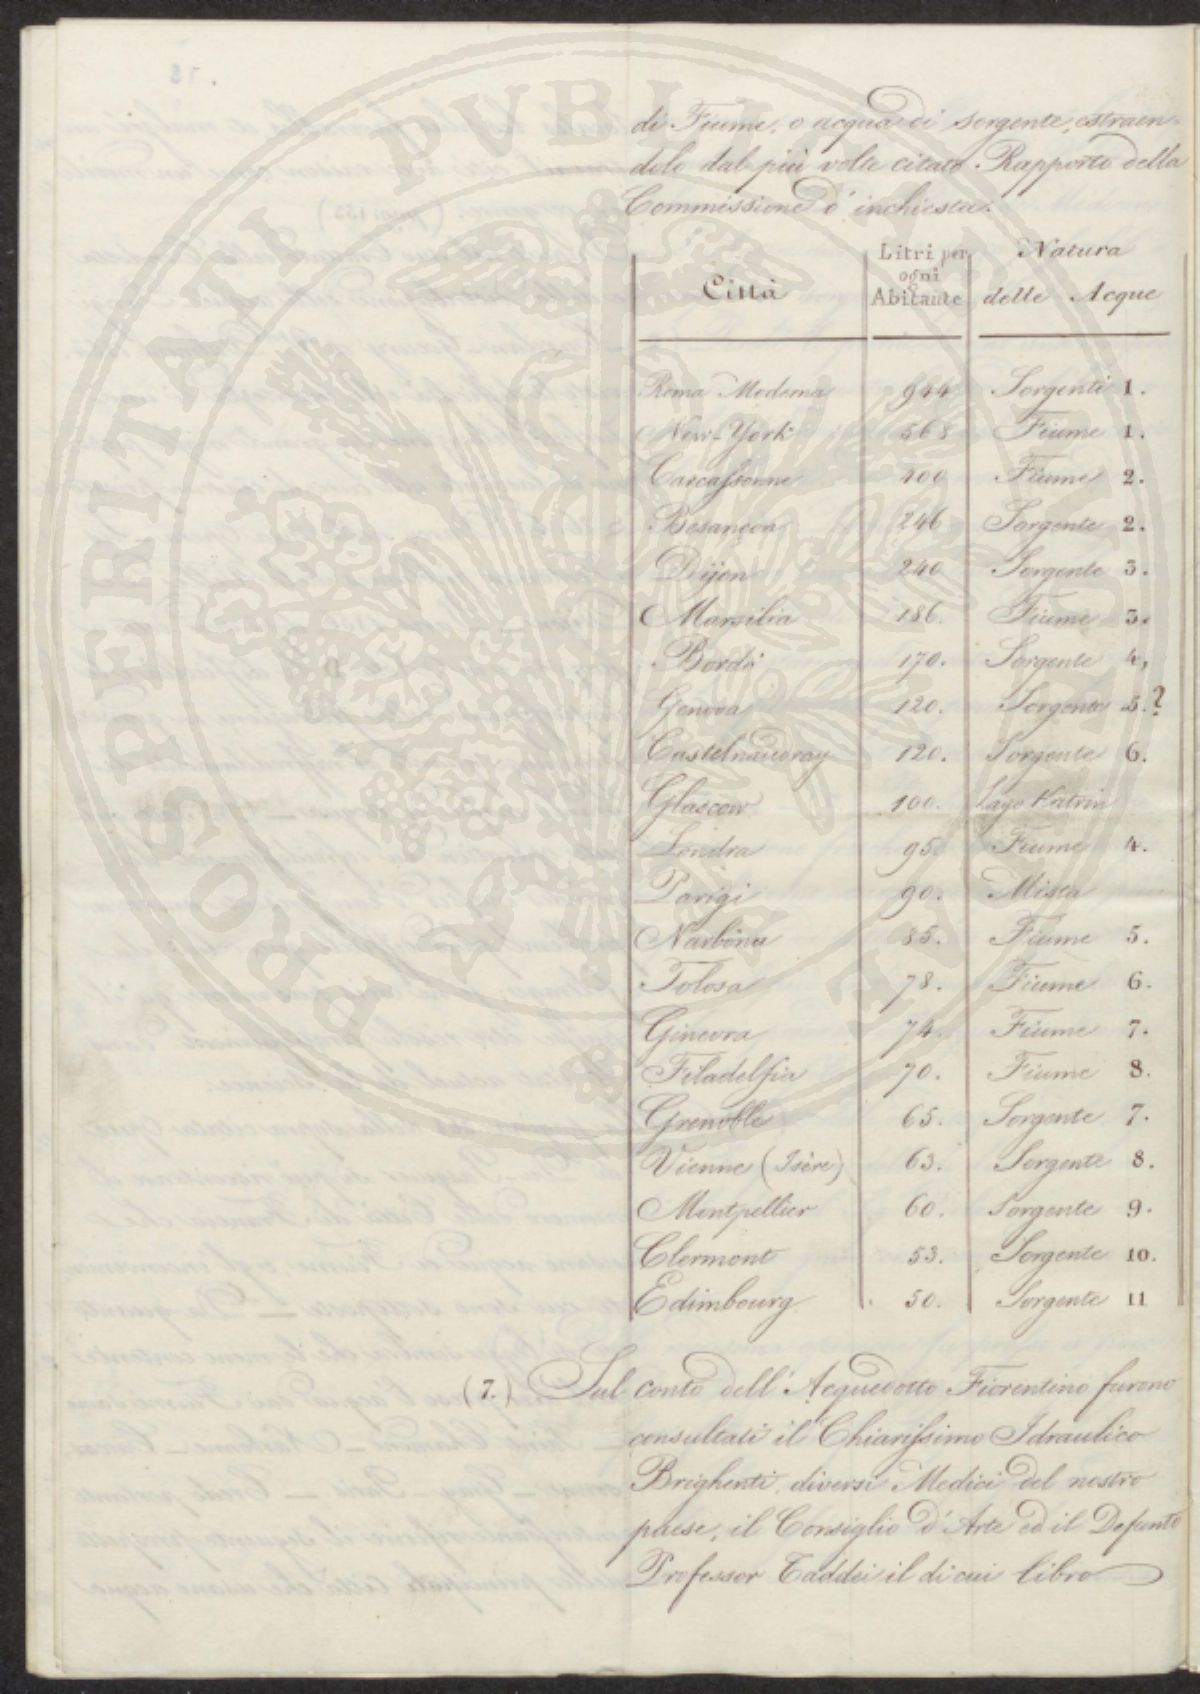 di Fiume, o acqua di Sorgente, estraen-
dolo dal più volte citato Rapporto della
Commissione d'inchiesta.
Città Litri per ogni Abitante Natura delle Acque
Roma Moderna 944 Sorgenti 1.
New-York 568 Fiume 1.
Carcassonne 400 Fiume 2.
Besançon 246 Sorgente 2.
Dijon 240 Sorgente 3.
Marsilia 186. Fiume 3.
Bordò 170. Sorgente 4,
Genova 120. Sorgente 5.?
Castelnaudray 120. Sorgente 6.
Glascow 100. Lago Katrin
Londra 95. Fiume 4.
Parigi 90. Mista
Narbona 85. Fiume 5.
Tolosa 78. Fiume 6.
Ginevra 74. Fiume 7.
Filadelfia 70. Fiume 8.
Grenoble 65. Sorgente 7.
Vienne (Isère) 63. Sorgente 8.
Montpellier 60. Sorgente 9.
Clermont 53. Sorgente 10.
Edimbourg 50. Sorgente 11
(7.) Sul conto dell'Acquedotto Fiorentino furono
consultati il Chiarissimo Idraulico
Brighenti, diversi Medici del nostro
paese, il Consiglio d'Arte ed il Defunto
Professor Taddei il di cui libro
PROSPERITATI PUBLICAE